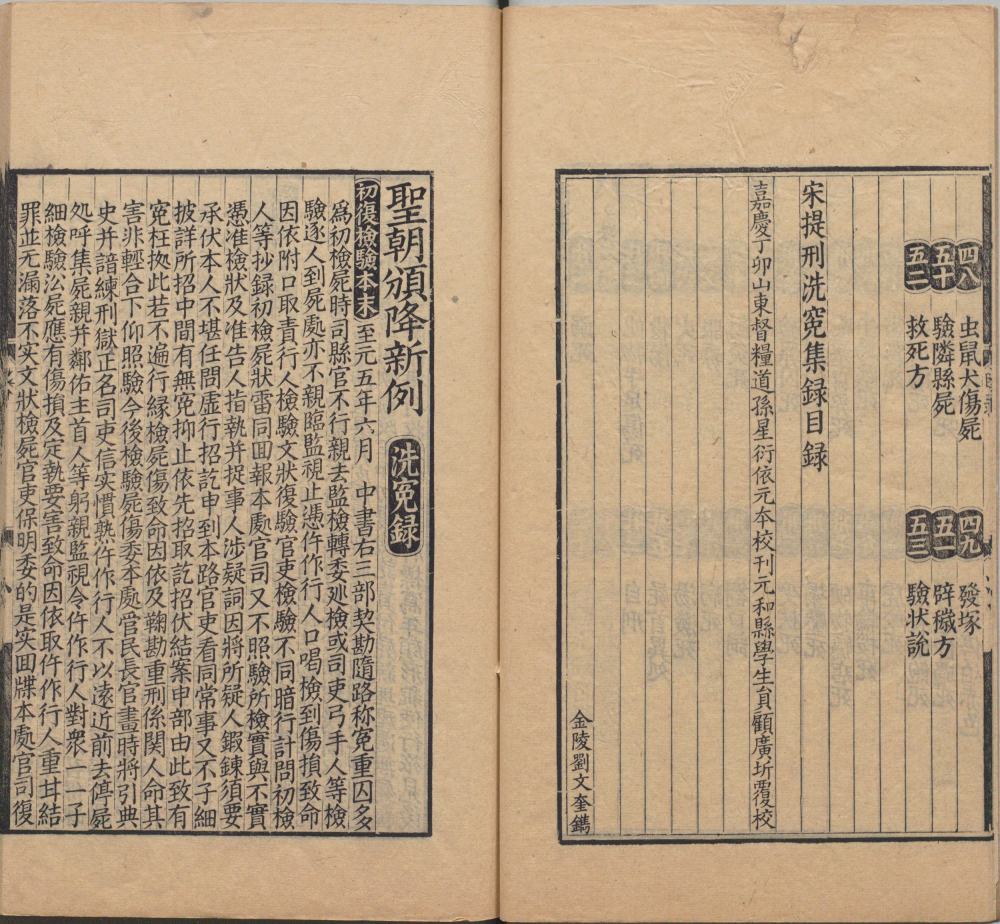 四八 虫鼠犬傷屍 四九 發塚
五十 驗隣縣屍 五一 辟穢方
五二 救死方 五三 驗状說
宋提刑洗冤集録目録
嘉慶丁卯山東督糧道孫星衍依元本校刊元和縣學生員顧廣圻覆校
金陵劉文奎鐫
聖朝頒降新例 洗冤録
初復檢驗本末 至元五年六月 中書右三部契勘隨路称冤重囚多
爲初檢屍時司縣官不行親去監檢轉委廵檢或司吏弓手人等檢
驗逐人到屍處亦不親臨監視止憑仵作行人口喝檢到傷損致命
因依附口取責行人檢驗文狀復驗官吏檢驗不同暗行計問初檢
人等抄録初檢屍狀雷同回報本處官司又不照驗所檢實與不實
憑准檢狀及准告人指執并捉事人涉疑詞因將所疑人鍜鍊須要
承伏本人不堪任問虛行招訖申到本路官吏看同常事又不子細
披詳所招中間有無冤抑止依先招取訖招伏結案申部由此致有
冤枉拠此若不遍行緣檢屍傷致命因依及鞠勘重刑係関人命其
害非輕合下仰照驗今後檢驗屍傷委本處管民長官畫時將引典
史并諳練刑獄正名司吏信实慣熟仵作行人不以遠近前去停屍
処呼集屍親并鄰佑主首人等躬親監視令仵作行人對衆一一子
細檢驗沿屍應有傷損及定執要害致命因依取仵作行人重甘結
罪並无漏落不实文狀檢屍官吏保明委的是实回牒本處官司復